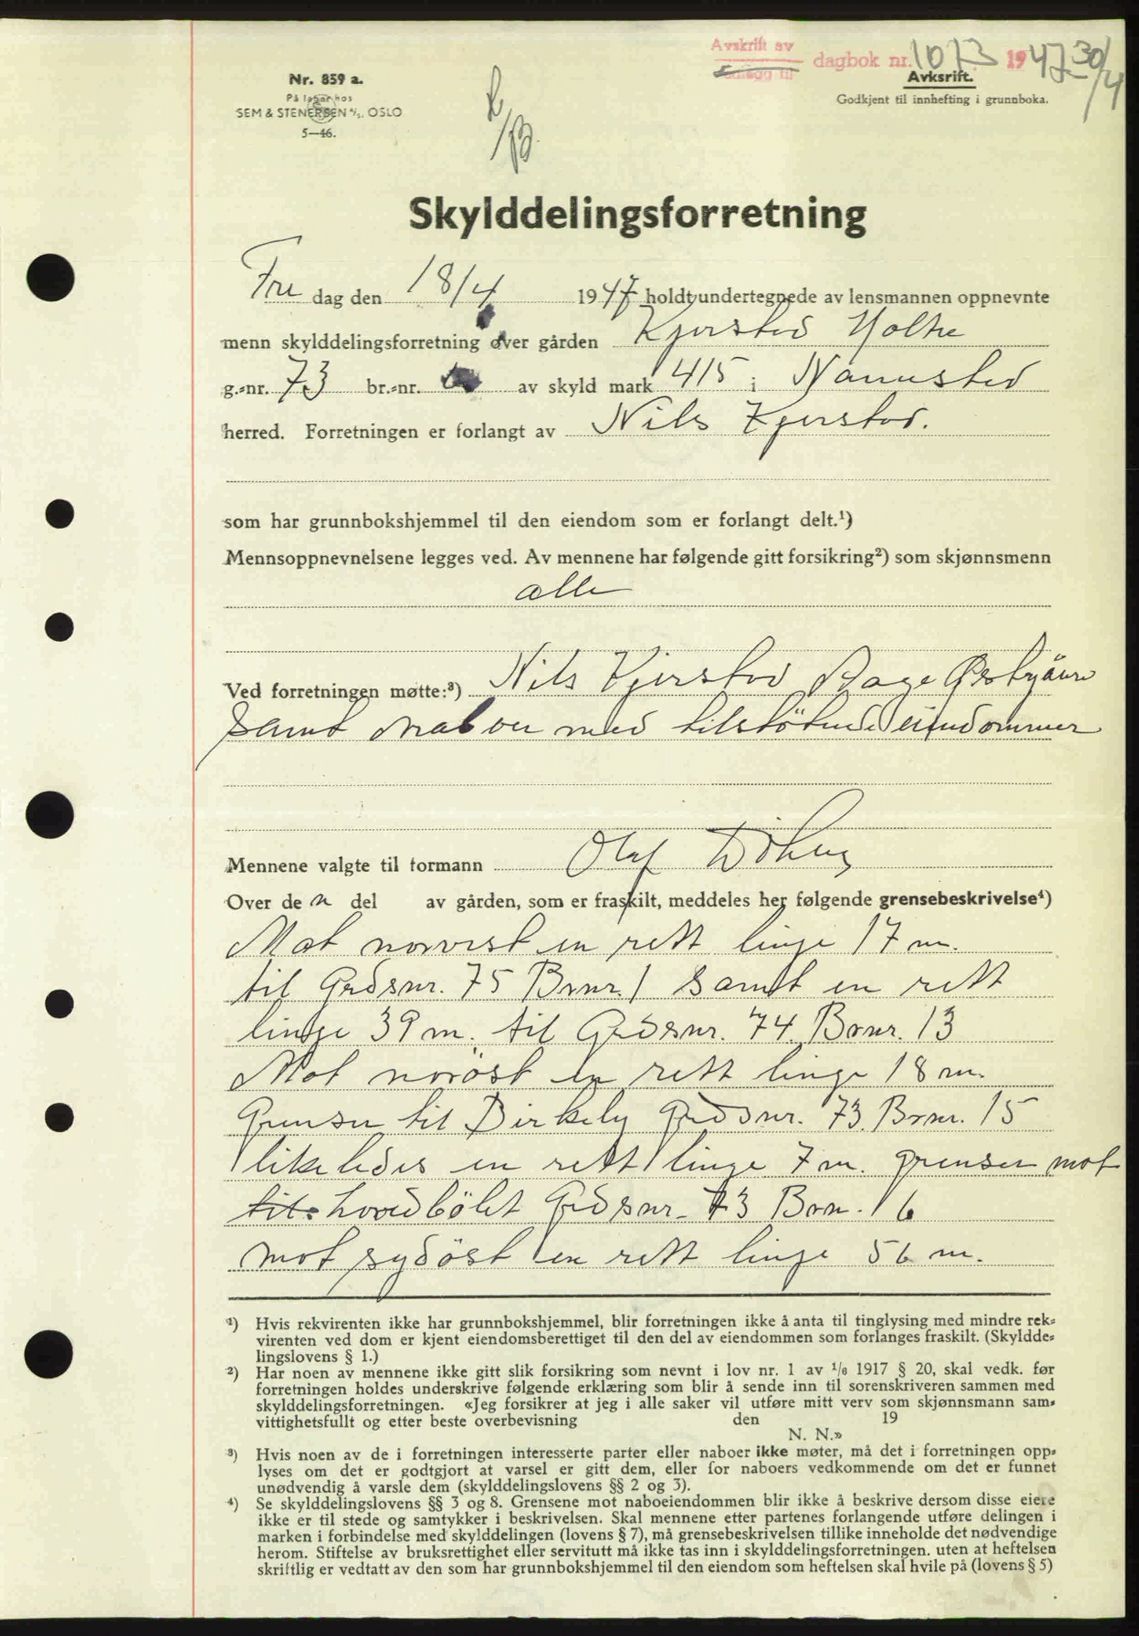 Avskrift av
dagbok nr. 1073 1947 30/4
Avskrift.
Nr. 859 a.
På lager hos
Godkjent til innhefting i grunnboka.
SEM & STENERSEN A/S. OSLO
5—46.
L/B.
Skylddelingsforretning
Fre dag den 18/4 1947 holdt undertegnede av lensmannen oppnevnte
menn skylddelingsforretning over gården Kjerstad Holtne
g.-nr. 73 br.-nr. av skyld mark 415 i Nannestad
herred. Forretningen er forlangt av Nils Kjerstad.
som har grunnbokshjemmel til den eiendom som er forlangt delt.¹)
Mennsoppnevnelsene legges ved. Av mennene har følgende gitt forsikring²) som skjønnsmenn
alle
Ved forretningen møtte:³) Nils Kjerstad Aage
samt naboer med tilstötende eiendommer
Mennene valgte til formann Olaf
Over de n del av gården, som er fraskilt, meddeles her følgende grensebeskrivelse⁴)
Mot norvest en rett linje 17 m.
til Grdsnr. 75 Brnr. 1 samt en rett
linje 39 m. til Grdsnr. 74 Brnr. 13
Mot noröst en rett linje 18 m.
Grensen til Birkely Grdsnr. 73. Brnr. 15
likeledes en rett linje 7 m. grensen mot
til hovedbölet Grdsnr. 73 Brn. 6
mot sydöst en rett linje 56 m.
¹) Hvis rekvirenten ikke har grunnbokshjemmel, blir forretningen ikke å anta til tinglysing med mindre rek-
virenten ved dom er kjent eiendomsberettiget til den del av eiendommen som forlanges fraskilt. (Skyldde-
lingslovens § 1.)
²) Har noen av mennene ikke gitt slik forsikring som nevnt i lov nr. 1 av ¹/6 1917 § 20, skal vedk. før
forretningen holdes underskrive følgende erklæring som blir å sende inn til sorenskriveren sammen med
skylddelingsforretningen. «Jeg forsikrer at jeg i alle saker vil utføre mitt verv som skjønnsmann sam-
vittighetsfullt og etter beste overbevisning den 19
N. N.»
³) Hvis noen av de i forretningen interesserte parter eller naboer ikke møter, må det i forretningen opp-
lyses om det er godtgjort at varsel er gitt dem, eller for naboers vedkommende om det er funnet
unødvendig å varsle dem (skylddelingslovens §§ 2 og 3).
⁴) Se skylddelingslovens §§ 3 og 8. Grensene mot naboeiendommen blir ikke å beskrive dersom disse eiere
ikke er til stede og samtykker i beskrivelsen. Skal mennene etter partenes forlangende utføre delingen i
marken i forbindelse med skylddelingen (lovens § 7), må grensebeskrivelsen tillike inneholde det nødvendige
herom. Stiftelse av bruksrettighet eller servitutt må ikke tas inn i skylddelingsforretningen. uten at heftelsen
skriftlig er vedtatt av den som har grunnbokshjemmel til den eiendom som heftelsen skal hvile på (lovens § 5)